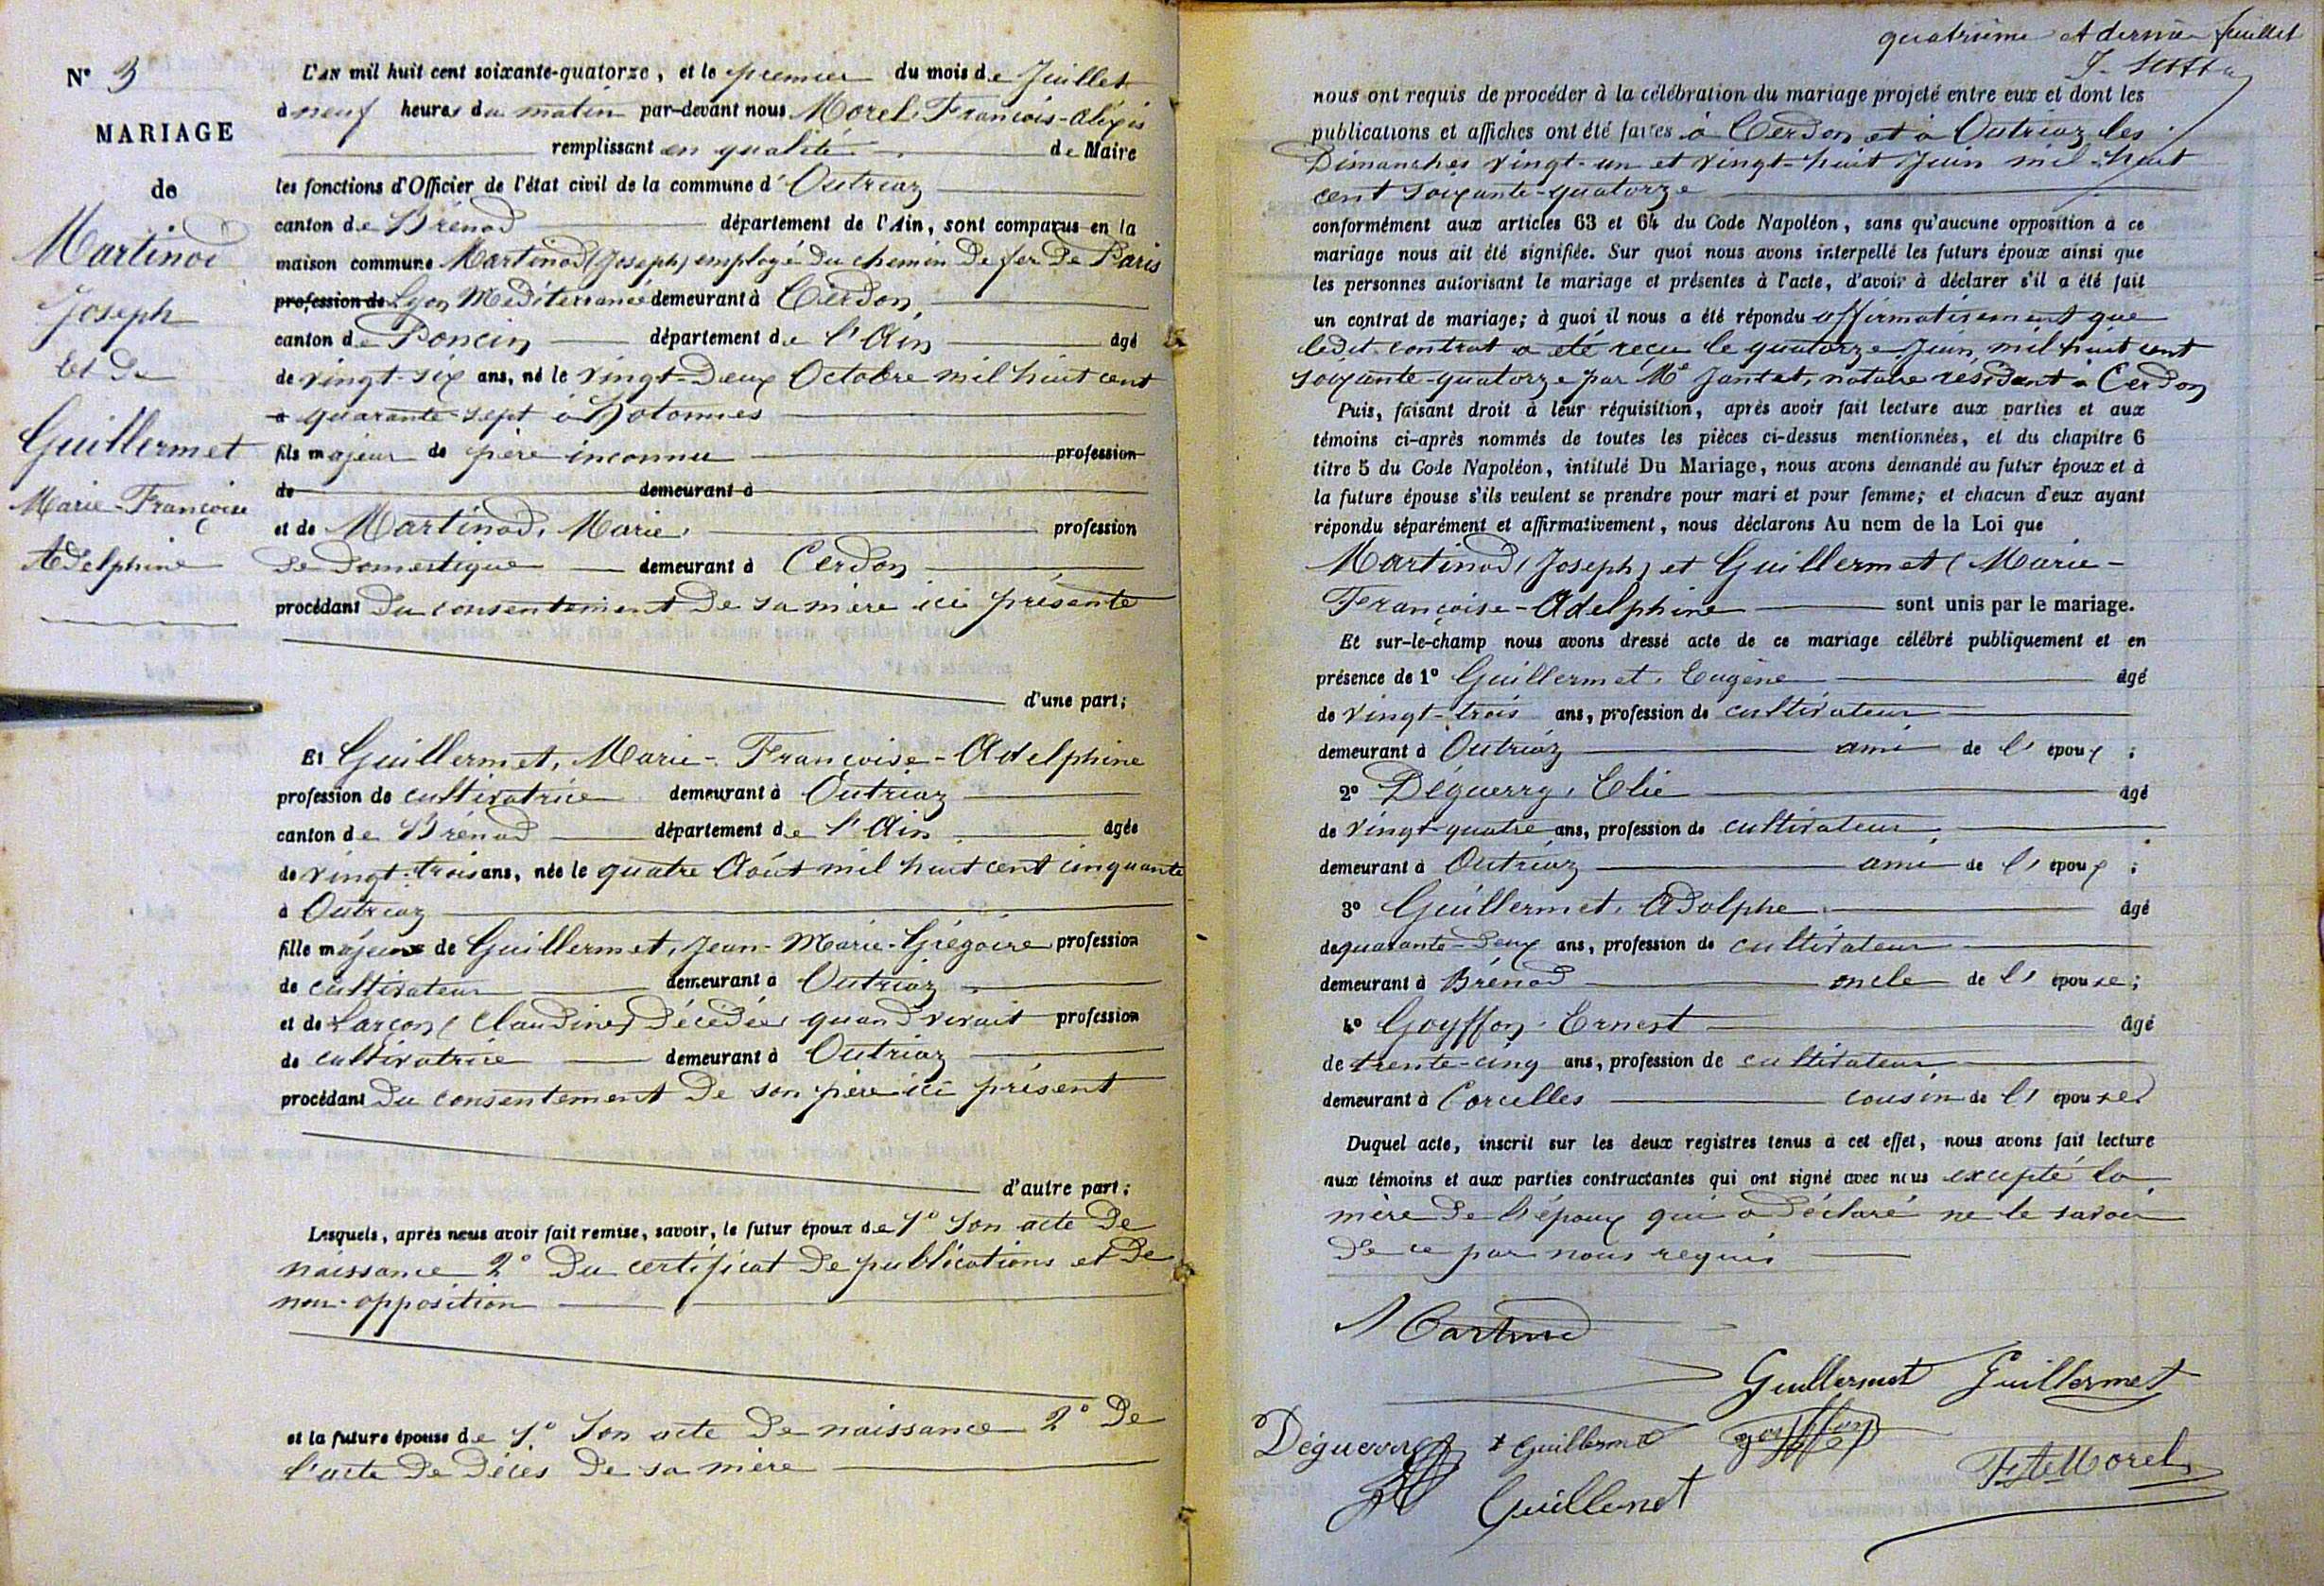 N° 3
MARIAGE
de
Martinod
Joseph
Et De
Guillermet
Marie-Françoise
Adelphine
L'AN mil huit cent soixante-quatorze, et le premier du mois de Juillet
à neuf heures du matin par-devant nous Morel, François-Aléxis
remplissant en qualité de Maire
les fonctions d'Officier de l'état civil de la commune d'Outriaz
canton de Brénod département de l'Ain, sont comparus en la
maison commune Martinod (Joseph) employé du chemin De fer De Paris
profession de Lyon Méditerranée demeurant à Cerdon,
canton de Poncin département de l'Ain âgé
de vingt-six ans, né le vingt-Deux Octobre mil huit cent
à quarante-sept à Hotonnes
fils majeur de père inconnu profession
de demeurant à
et de Martinod, Marie, profession
De Domestique demeurant à Cerdon
procédant Du consentement De sa mère ici présente
d'une part;
Et Guillermet, Marie-Françoise-Adelphine
profession de cultivatrice demeurant à Outriaz
canton de Brénod département de l'Ain âgée
de vingt-trois ans, née le quatre Août mil huit cent cinquante
à Outriaz
fille majeure de Guillermet, Jean-Marie-Grégoire profession
de cultivateur demeurant à Outriaz
et de Larçon (Claudine) Décédée, quand vivait profession
de cultivatrice demeurant à Outriaz
procédant Du consentement De son père ici présent
d'autre part;
Lesquels, après nous avoir fait remise, savoir, le futur époux de 1° Son acte De
naissance 2° Du certificat De publications et De
non-opposition
et la future épouse de 1° Son acte De naissance 2° De
l'acte De Décès De sa mère
quatrième et dernier feuillet
nous ont requis de procéder à la célébration du mariage projeté entre eux et dont les
publications et affiches ont été faites à Cerdon et à Outriaz les
Dimanches vingt-un et vingt-huit Juin mil-huit
cent soixante-quatorze
conformément aux articles 63 et 64 du Code Napoléon, sans qu'aucune opposition à ce
mariage nous ait été signifiée. Sur quoi nous avons interpellé les futurs époux ainsi que
les personnes autorisant le mariage et présentes à l'acte, d'avoir à déclarer s'il a été fait
un contrat de mariage; à quoi il nous a été répondu affirmativement que
ledit contrat a été reçu le quatorze Juin, mil huit cent
soixante-quatorze par Me Jantet, notaire résidant à Cerdon
Puis, faisant droit à leur réquisition, après avoir fait lecture aux parties et aux
témoins ci-après nommés de toutes les pièces ci-dessus mentionnées, et du chapitre 6
titre 5 du Code Napoléon, intitulé Du Mariage, nous avons demandé au futur époux et à
la future épouse s'ils veulent se prendre pour mari et pour femme; et chacun d'eux ayant
répondu séparément et affirmativement, nous déclarons Au nom de la Loi que
Martinod (Joseph) et Guillermet (Marie-
Françoise-Adelphine sont unis par le mariage.
Et sur-le-champ nous avons dressé acte de ce mariage célébré publiquement et en
présence de 1° Guillermet, Eugène âgé
de vingt-trois ans, profession de cultivateur
demeurant à Outriaz ami de l' époux ;
2° Déguerry, Elie âgé
de vingt-quatre ans, profession de cultivateur
demeurant à Outriaz ami de l' époux ;
3° Guillermet, Adolphe âgé
de quarante-Deux ans, profession de cultivateur
demeurant à Brénod oncle de l' épouse ;
4° Goyffon, Ernest âgé
de trente-cinq ans, profession de cultivateur
demeurant à Corcelles cousin de l' épouse
Duquel acte, inscrit sur les deux registres tenus à cet effet, nous avons fait lecture
aux témoins et aux parties contractantes qui ont signé avec nous excepté la
mère De l'époux qui a Déclaré ne le savoir
De ce par nous requis
Martinod
Guillermet Guillermet
Déguerry Guillermet goyffon
Guillermet
Morel